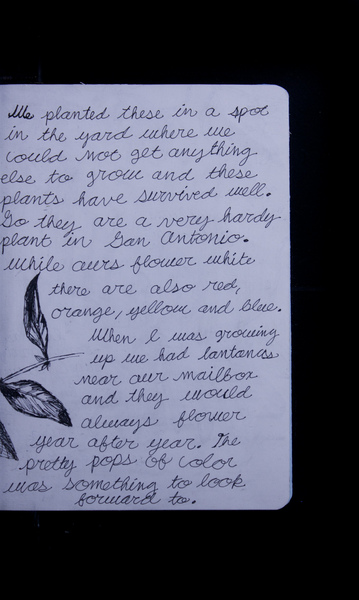 We planted these in a spot
in the yard where we
could not get anything
else to grow and these
plants have survived well.
So they are a very hardy
plant in San Antonio.
While ours flower white
there are also red,
orange, yellow and blue.
When I was growing
up we had lantanas
near our mailbox
and they would
always flower
year after year. The
pretty pops of color
was something to look
forward to.